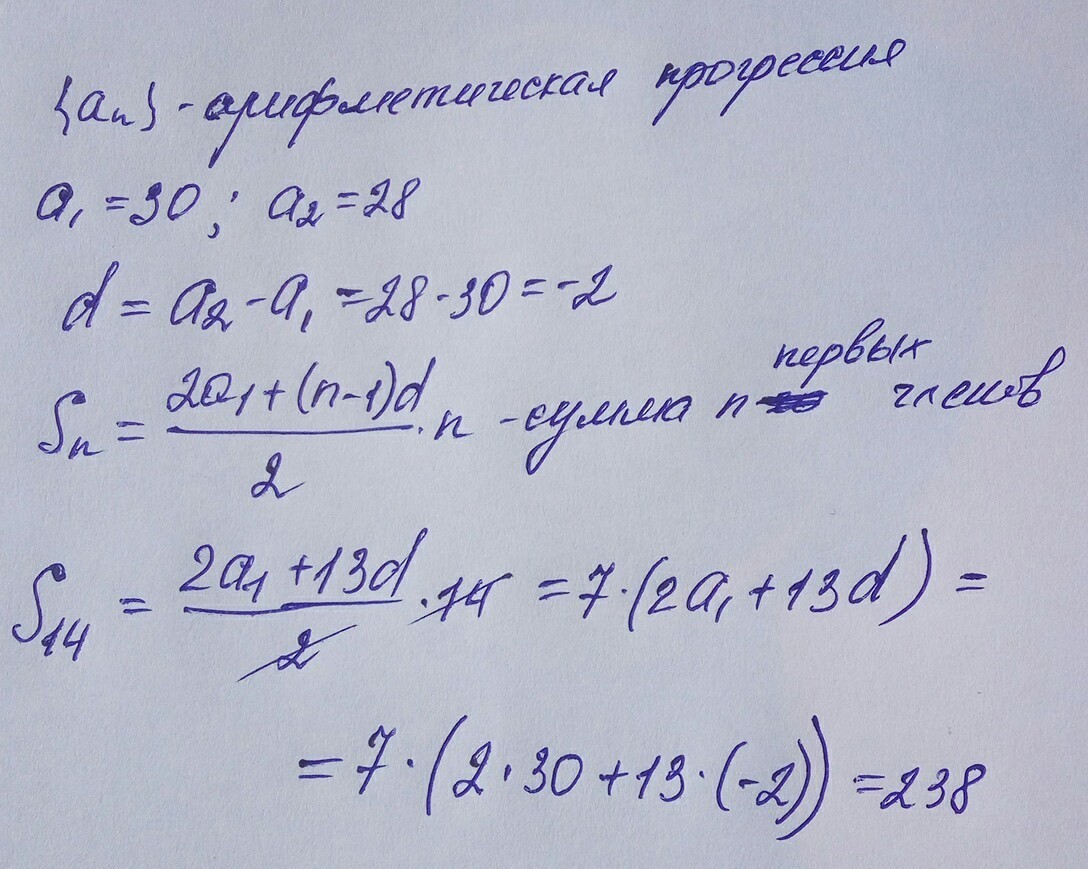 {aₙ} - арифметическая прогрессия
a₁ = 30 ; a₂ = 28
d = a₂ - a₁ = 28 - 30 = -2
Sₙ = (2a₁ + (n-1)d)/2 · n - сумма n первых членов
S₁₄ = (2a₁ + 13d)/2 · 14 = 7·(2a₁ + 13d) =
= 7·(2·30 + 13·(-2)) = 238